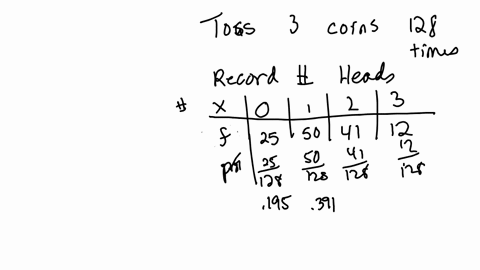 Toss 3 coins 128
times
Record # Heads
# X 0 1 2 3
f 25 50 41 12
25/128 50/128 41/128 12/128
.195 .391